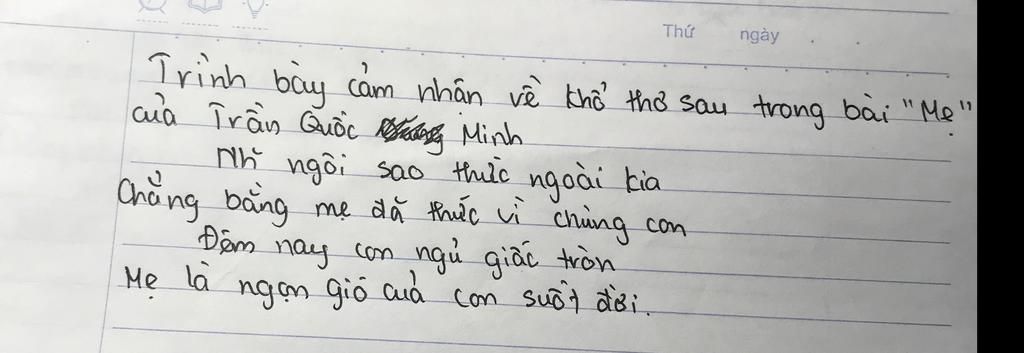 Thứ ngày
Trình bày cảm nhận về khổ thơ sau trong bài "Mẹ"
của Trần Quốc Minh
Nh ngôi sao thức ngoài kia
Chẳng bằng mẹ đã thức vì chúng con
Đêm nay con ngủ giấc tròn
Mẹ là ngọn gió của con suốt đời.